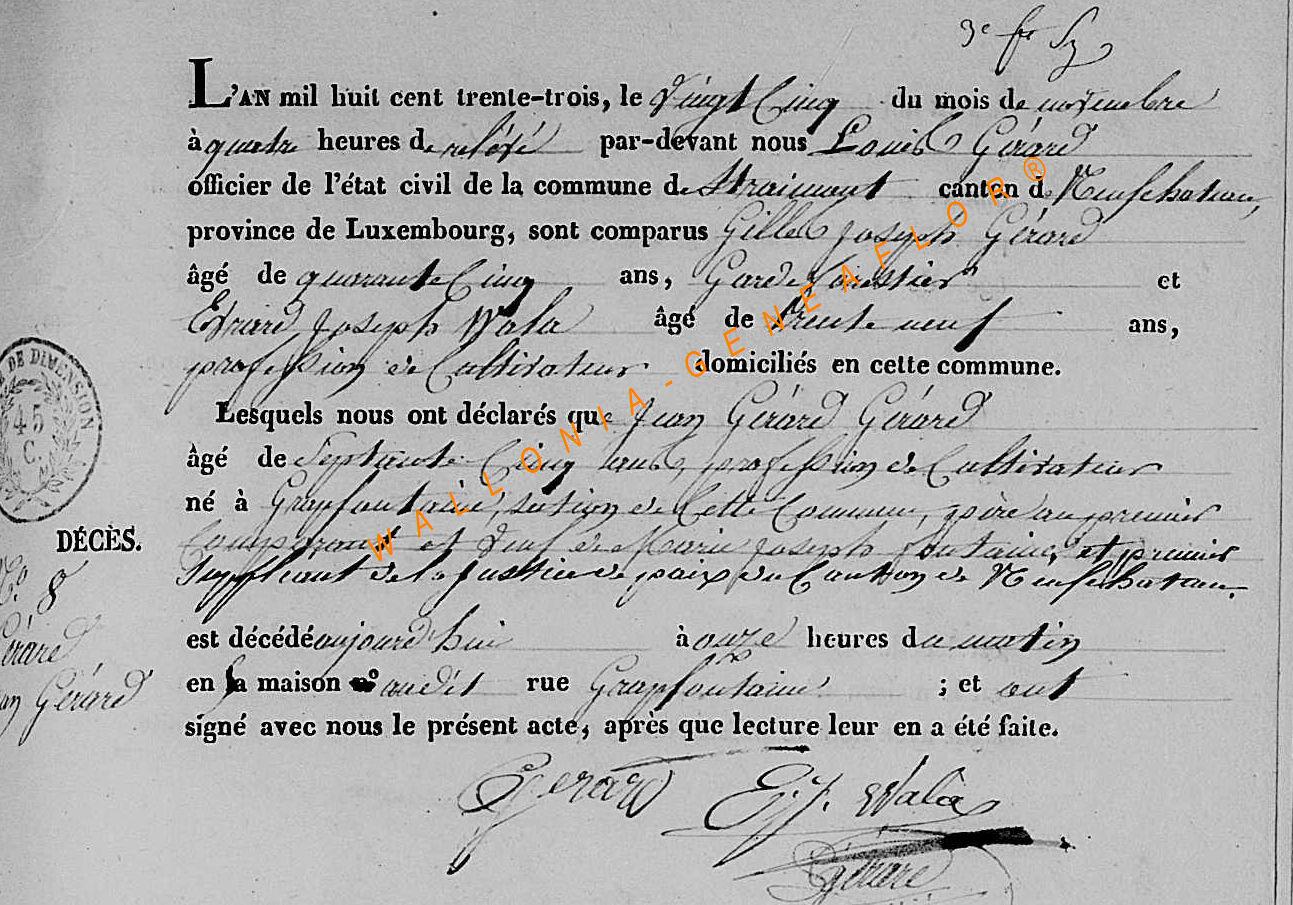 3e fr Sz
L'AN mil huit cent trente-trois, le Vingt Cinq du mois de novembre
à quatre heures de relévé par-devant nous Louis Gérard
officier de l'état civil de la commune de Straimont canton de Neufchateau,
province de Luxembourg, sont comparus Gilles Joseph Gérard
âgé de quarante Cinq ans, Garde forestier et
Evrard Joseph Wala âgé de trente neuf ans,
profession de Cultivateur domiciliés en cette commune.
Lesquels nous ont déclarés que Jean Gérard Gérard
âgé de Septante Cinq ans, profession de Cultivateur
né à Grapfontaine, section de Cette Commune, père au premier
DÉCÈS.
Comparant et veuf de Marie Joseph fontaine, et premier
Suppléant de la Justice de paix du Canton de Neufchateau.
No. 8
est décédé aujourd'hui à onze heures du matin
Gérard
en sa maison no audit rue Grapfontaine ; et ont
Jean Gérard
signé avec nous le présent acte, après que lecture leur en a été faite.
Gerard E. J. Wala
Gérard
DE DIMENSION
45
C.
WALLONIA-GENEAFLOR®